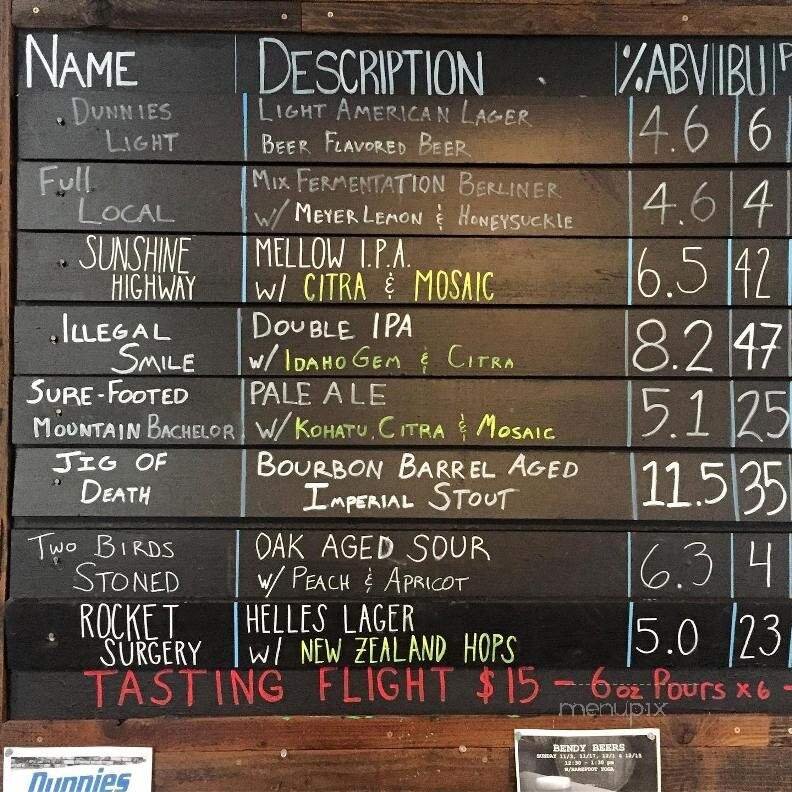 NAME DESCRIPTION %ABV IBU P
DUNNIES LIGHT AMERICAN LAGER 4.6 6
LIGHT BEER FLAVORED BEER
Full MIX FERMENTATION BERLINER 4.6 4
LOCAL W/ MEYER LEMON & HONEYSUCKLE
SUNSHINE MELLOW I.P.A. 6.5 42
HIGHWAY W/ CITRA & MOSAIC
ILLEGAL DOUBLE IPA 8.2 47
SMILE W/ IDAHO GEM & CITRA
SURE-FOOTED PALE ALE 5.1 25
MOUNTAIN BACHELOR W/ KOHATU, CITRA & MOSAIC
JIG OF BOURBON BARREL AGED 11.5 35
DEATH IMPERIAL STOUT
TWO BIRDS OAK AGED SOUR 6.3 4
STONED W/ PEACH & APRICOT
ROCKET HELLES LAGER 5.0 23
SURGERY W/ NEW ZEALAND HOPS
TASTING FLIGHT $15 - 6oz Pours x6 -
menupix
Dunnies
BENDY BEERS
SUNDAY 11/3, 11/17, 12/1 & 12/15
12:30 - 1:30 pm
W/BAREFOOT YOGA